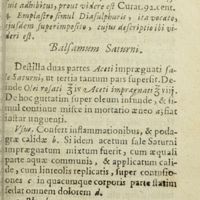 suit adhibitus, prout videre est Curat. 92. cent.
4. Emplastro simul Diasulphuris, ita vocato,
ejusdem superimposito, cujus descriptio ibi
videri est.
Balsamum Saturni.
Destilla duas partes Aceti impręgnati sa-
le Saturni, ut tertia tantum pars supersit. De-
inde Olei rosati ℥ iv Aceti impręgnati ℥ iij.
De hoc guttatim super oleum infunde, & si-
mul continue misce in mortario æneo a, fiat
instar unguenti.
Usus. Confert inflammationibus, & poda-
græ calidæ b. Si idem acetum sale Saturni
impręgnatum mixtum fuerit, cum æquali
parte aquæ communis, & applicatum cali-
de, cum linteolis replicatis, super contusio-
nes c in quacunque corporis parte statim
sedat omnem dolorem d.